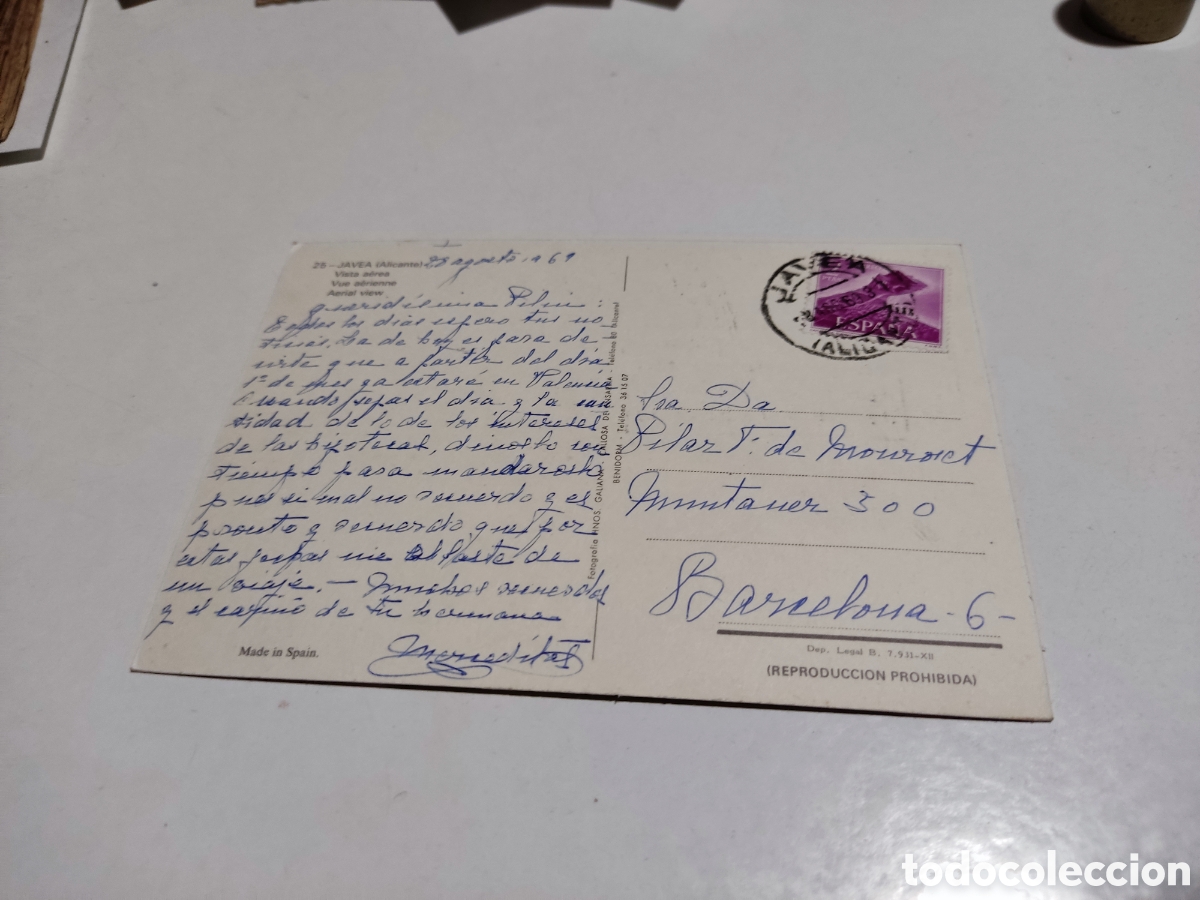 28 - JAVEA (Alicante)
Vista aérea
Vue aérienne
Aerial view
28 agosto 1969
queridísima Pilin:
Todos los dias espero tus no-
ticias. La de hoy es para de-
cirte que a partir del día
1º de mes ya estaré en Valencia
Cuando sepas el dia y la can
tidad de lo de los intereses
de las hipotecas, dinoslo con
tiempo para mandaroslo
pues si mal no recuerdo y es
pronto y recuerdo que por
estas fechas me hablaste de
un viaje. - Muchos recuerdos
y el cariño de tu hermana
Merceditas
Made in Spain.
Fotografía HNOS. GALIANA CALLOSA DE ENSARRIA - Teléfono
BENIDORM - Teléfono 36 15 07
JAVEA
(ALICANTE)
ESPAÑA
Sra Da
Pilar F. de Monroset
Muntaner 300
Barcelona - 6 -
Dep. Legal B. 7.931-XII
(REPRODUCCION PROHIBIDA)
todocoleccion